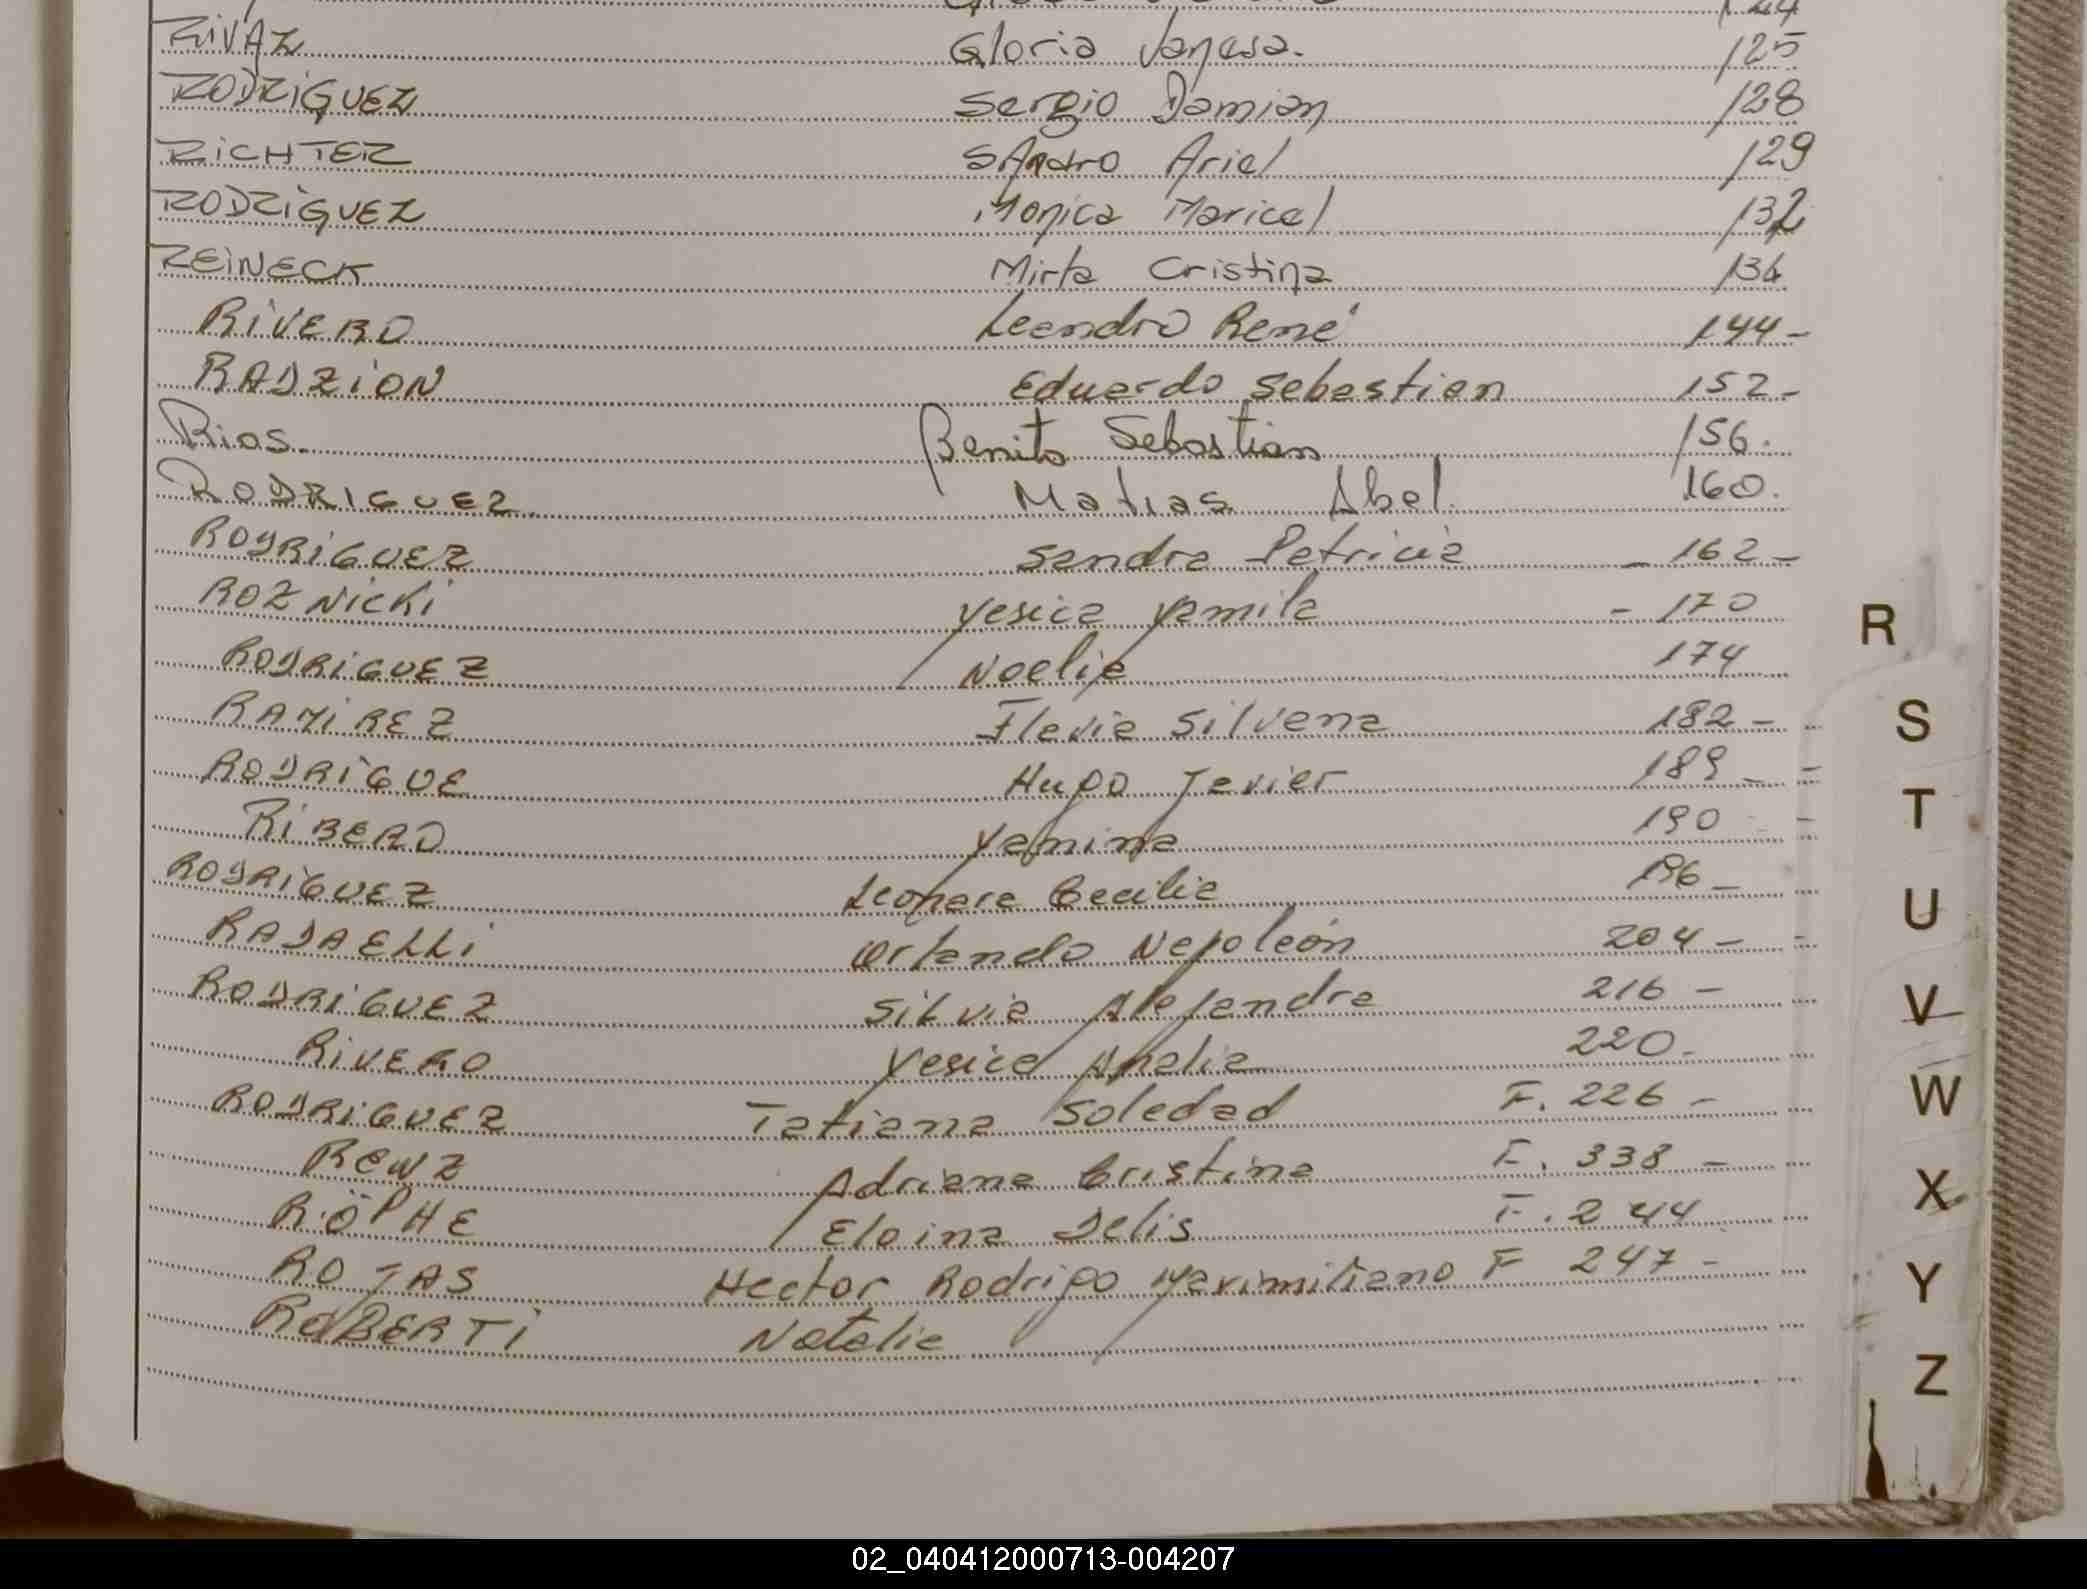 124
RIVAZ Gloria Vanesa. 125
RODRIGUEZ Sergio Damian 128
RICHTER SAndro Ariel 129
RODRIGUEZ Monica Maricel 132
REINECK Mirta Cristina 136
RIVERO Leandro René 144-
RADZION Eduardo Sebastian 152-
Rios. Benito Sebastian 156.
RODRIGUEZ Matias Abel. 160.
RODRIGUEZ Sandra Patricia - 162-
ROZNICKI Yesica Yamila - 170
RODRIGUEZ Noelia 174
RAMIREZ Flavia Silvana 182-
RODRIGUE Hugo Javier 189-
RIBERO Yanina 190
RODRIGUEZ Leonara Cecilia 196-
RADAELLI Orlando Napoleón 204-
RODRIGUEZ Silvia Alejandra 216-
RIVERO Yesica Analia 220-
RODRIGUEZ Tatiana Soledad F. 226-
RENZ Adriana Cristina F. 338-
RÖPHE Eloina Delis F. 244
ROJAS Hector Rodrigo Maximiliano F 247-
ROBERTI Natalia
R
S
T
U
V
W
X
Y
Z
02_040412000713-004207